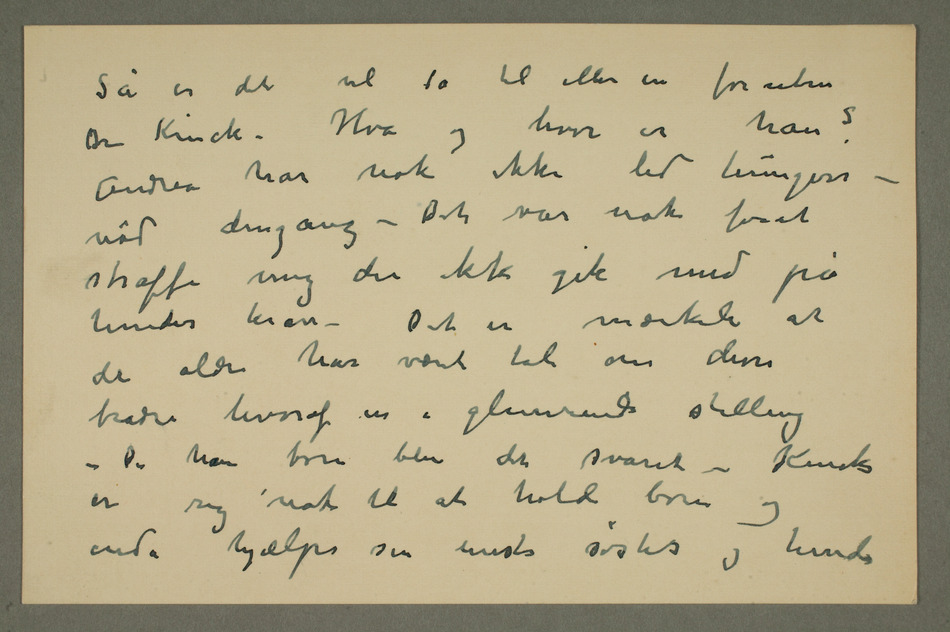 Så er det vel så til eller en for uten
Dr Kinck – Hva og hvor er han?
Andrea har nok ikke led hunger –
nöd dengang – Det var nok for at
straffe mig der ikke gik med på
hendes krav – Det er mærkeli at
der aldri har vært tale om deres
brødre hvoraf en i glimrende stilling
– De har born blev det svaret – Kincks
er rig nok til at holde born og
enda hjælpe sin eneste söster og hendes